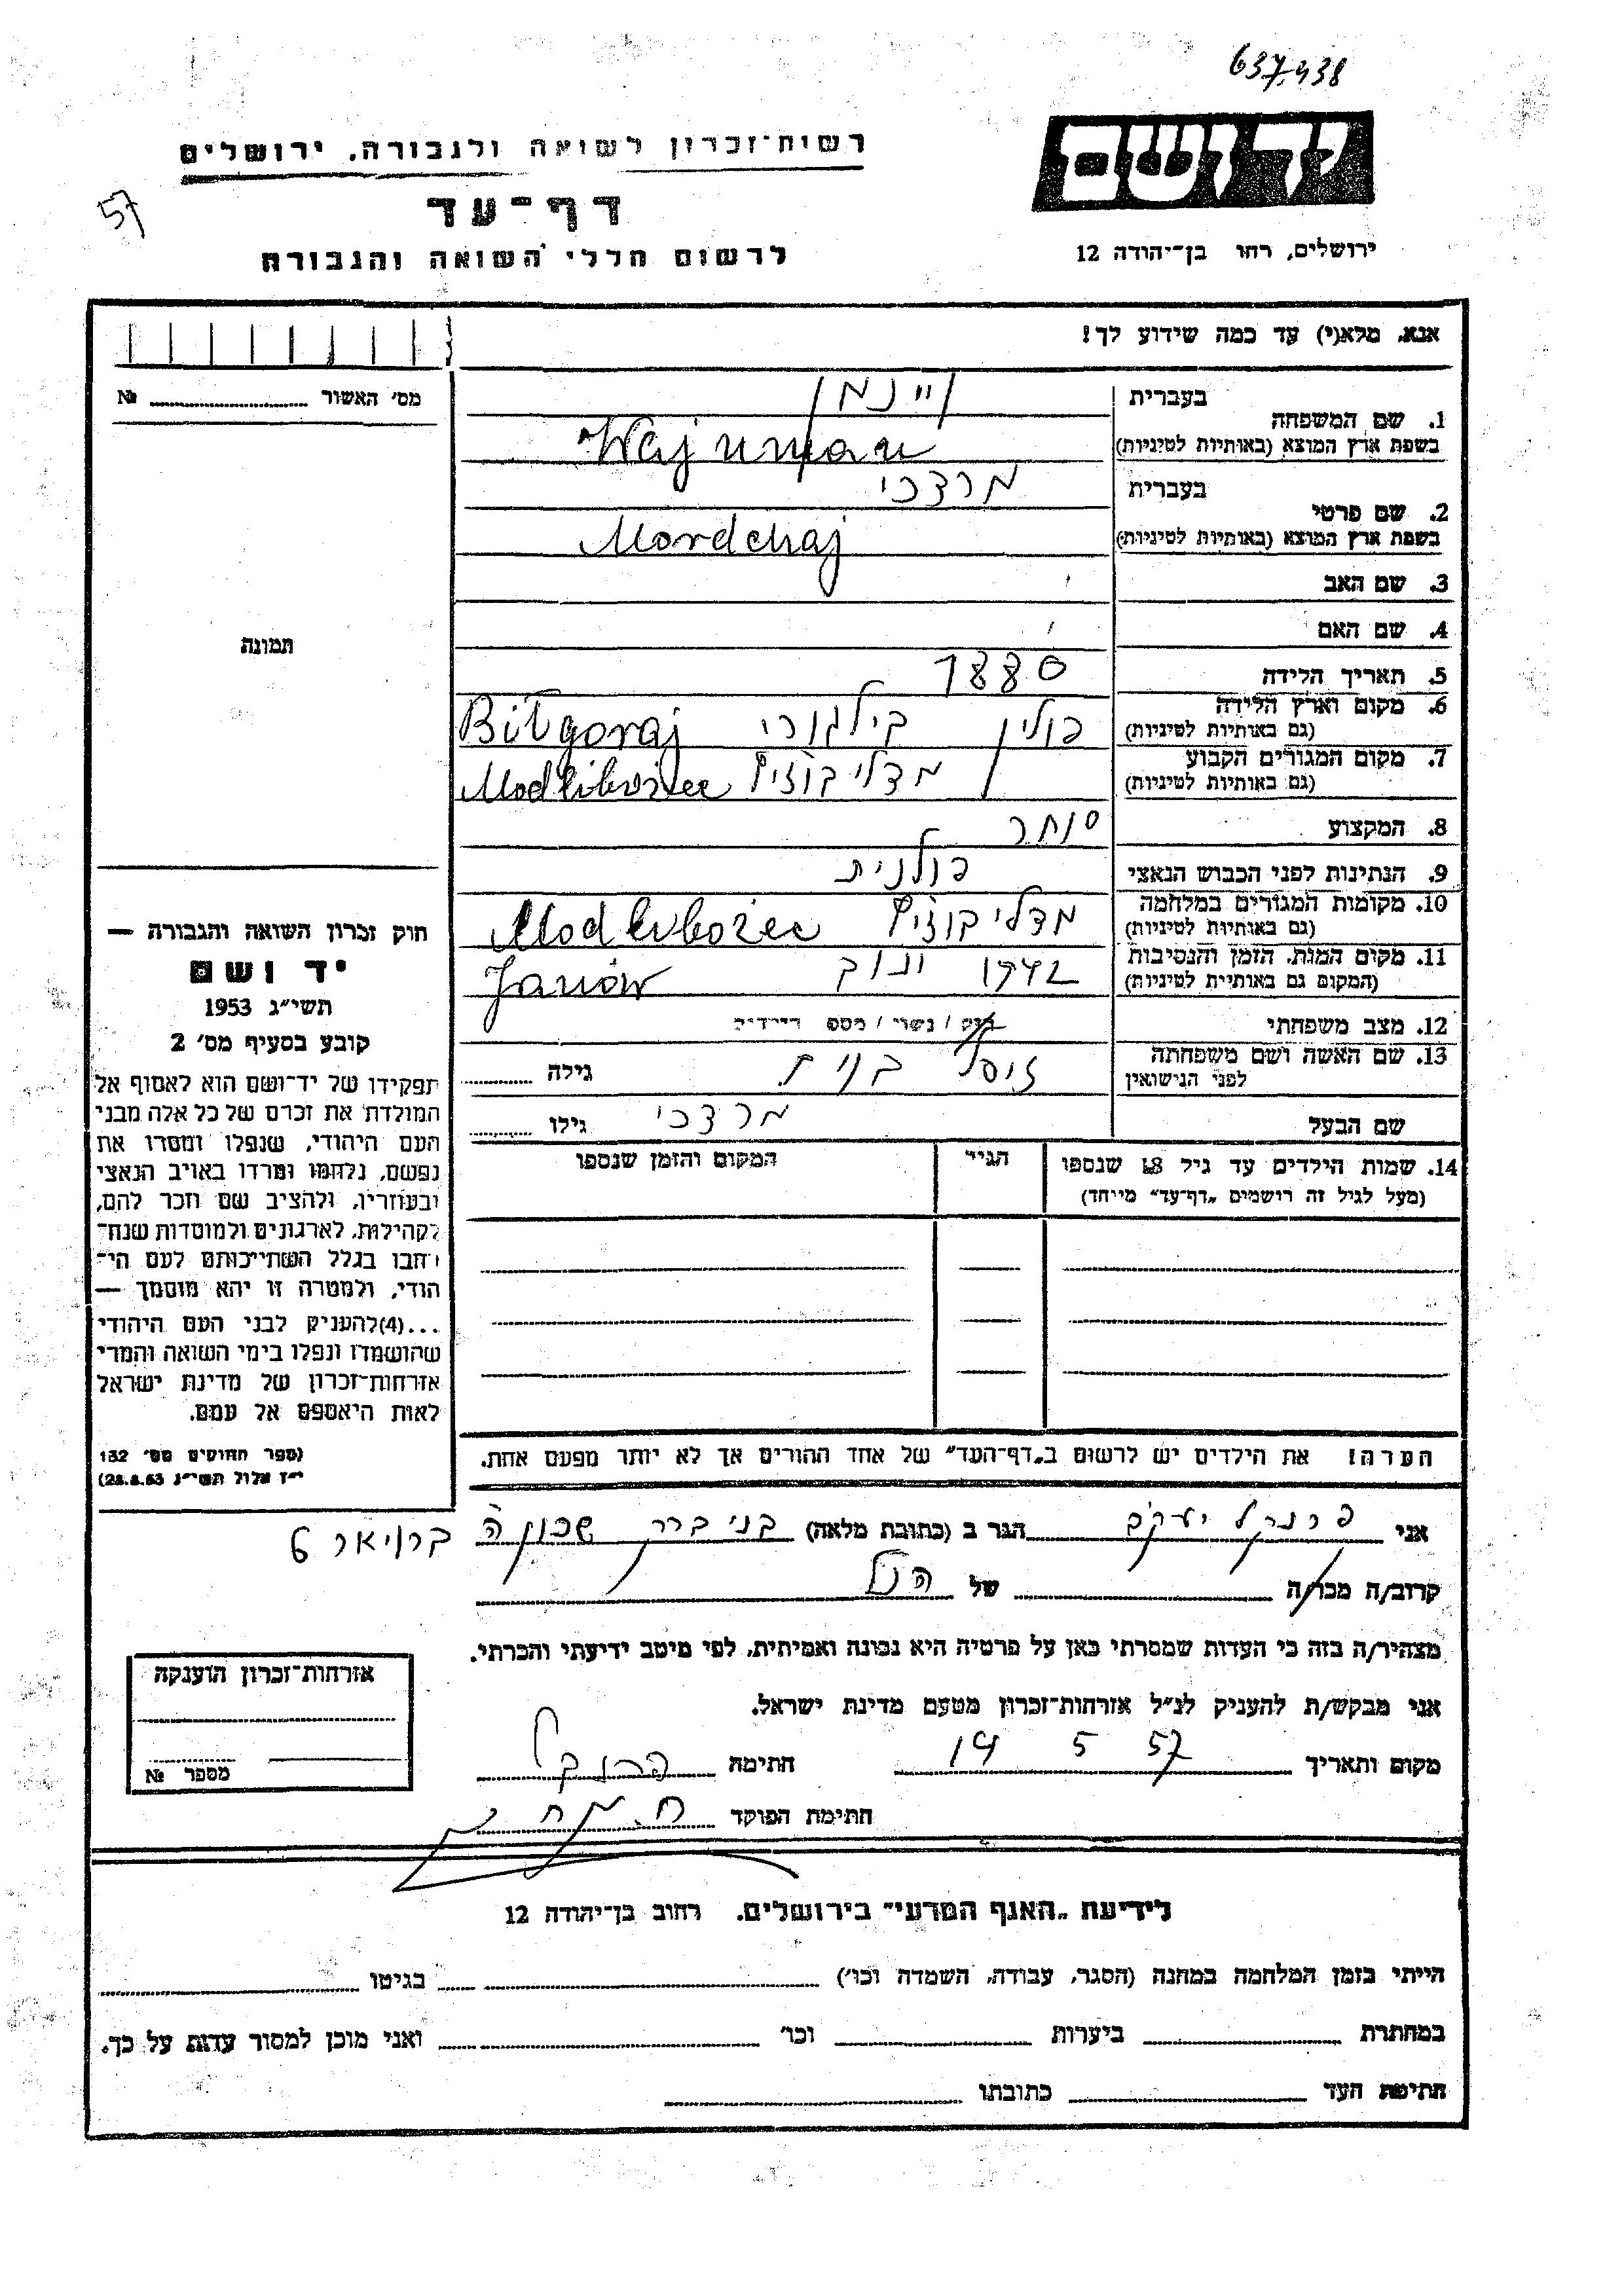 637.438
רשות־זכרון לשואה ולגבורה, ירושלים
יד ושם
57
דף־עד
לרשום חללי השואה והגבורה
ירושלים, רחו בן־יהודה 12
אנא, מלא(י) עד כמה שידוע לך!
מס׳ האשור № 
בעברית ויינמן
1. שם המשפחה
בשפת ארץ המוצא (באותיות לטיניות) Wajnman
בעברית מרדכי
2. שם פרטי
בשפת ארץ המוצא (באותיות לטיניות) Mordchaj
3. שם האב
4. שם האם
תמונה
5. תאריך הלידה 1880
6. מקום וארץ הלידה פולין בילגורי Biłgoraj
(גם באותיות לטיניות)
7. מקום המגורים הקבוע מדליבוזיץ Modliborzec
(גם באותיות לטיניות)
8. המקצוע סוחר
9. הנתינות לפני הכבוש הנאצי פולנית
10. מקומות המגורים במלחמה מדליבוזיץ Modliborzec
(גם באותיות לטיניות)
11. מקום המות, הזמן והנסיבות 1942 ינוב Janów
(המקום גם באותיות לטיניות)
12. מצב משפחתי רוק / נשוי / מספ הילדים
13. שם האשה ושם משפחתה זיסל גילה
לפני הנישואין
שם הבעל מרדכי גילו
14. שמות הילדים עד גיל 18 שנספו הגיל המקום והזמן שנספו
(מעל לגיל זה רושמים „דף־עד״ מיוחד)
חוק זכרון השואה והגבורה —
יד ושם
תשי״ג 1953
קובע בסעיף מס׳ 2
תפקידו של יד־ושם הוא לאסוף אל
המולדת את זכרם של כל אלה מבני
העם היהודי, שנפלו ומסרו את
נפשם, נלחמו ומרדו באויב הנאצי
ובעוזריו, ולהציב שם וזכר להם,
לקהילות, לארגונים ולמוסדות שנח־
רבו בגלל השתייכותם לעם הי־
הודי, ולמטרה זו יהא מוסמך —
...(4)להעניק לבני העם היהודי
שהושמדו ונפלו בימי השואה והמרי
אזרחות־זכרון של מדינת ישראל
לאות היאספם אל עמם.
(ספר החוקים מס׳ 132
י״ז אלול תשי״ג 28.8.53)
הערה! את הילדים יש לרשום ב„דף־העד״ של אחד ההורים אך לא יותר מפעם אחת.
אני פרנקל יעקב הגר ב (כתובת מלאה) בני ברק שכון ה
קרוב/ה מכר/ה של הנ״ל
מצהיר/ה בזה כי העדות שמסרתי כאן על פרטיה היא נכונה ואמיתית, לפי מיטב ידיעתי והכרתי.
אני מבקש/ת להעניק לנ״ל אזרחות־זכרון מטעם מדינת ישראל.
מקום ותאריך 19 5 57 חתימה פרנקל
חתימת הפוקד
אזרחות־זכרון הוענקה
מספר №
לידיעת „האגף המדעי״ בירושלים, רחוב בן־יהודה 12
הייתי בזמן המלחמה במחנה (הסגר, עבודה, השמדה וכו׳) בגיטו
במחתרת ביערות וכו׳ ואני מוכן למסור עדות על כך.
חתימת העד כתובתו